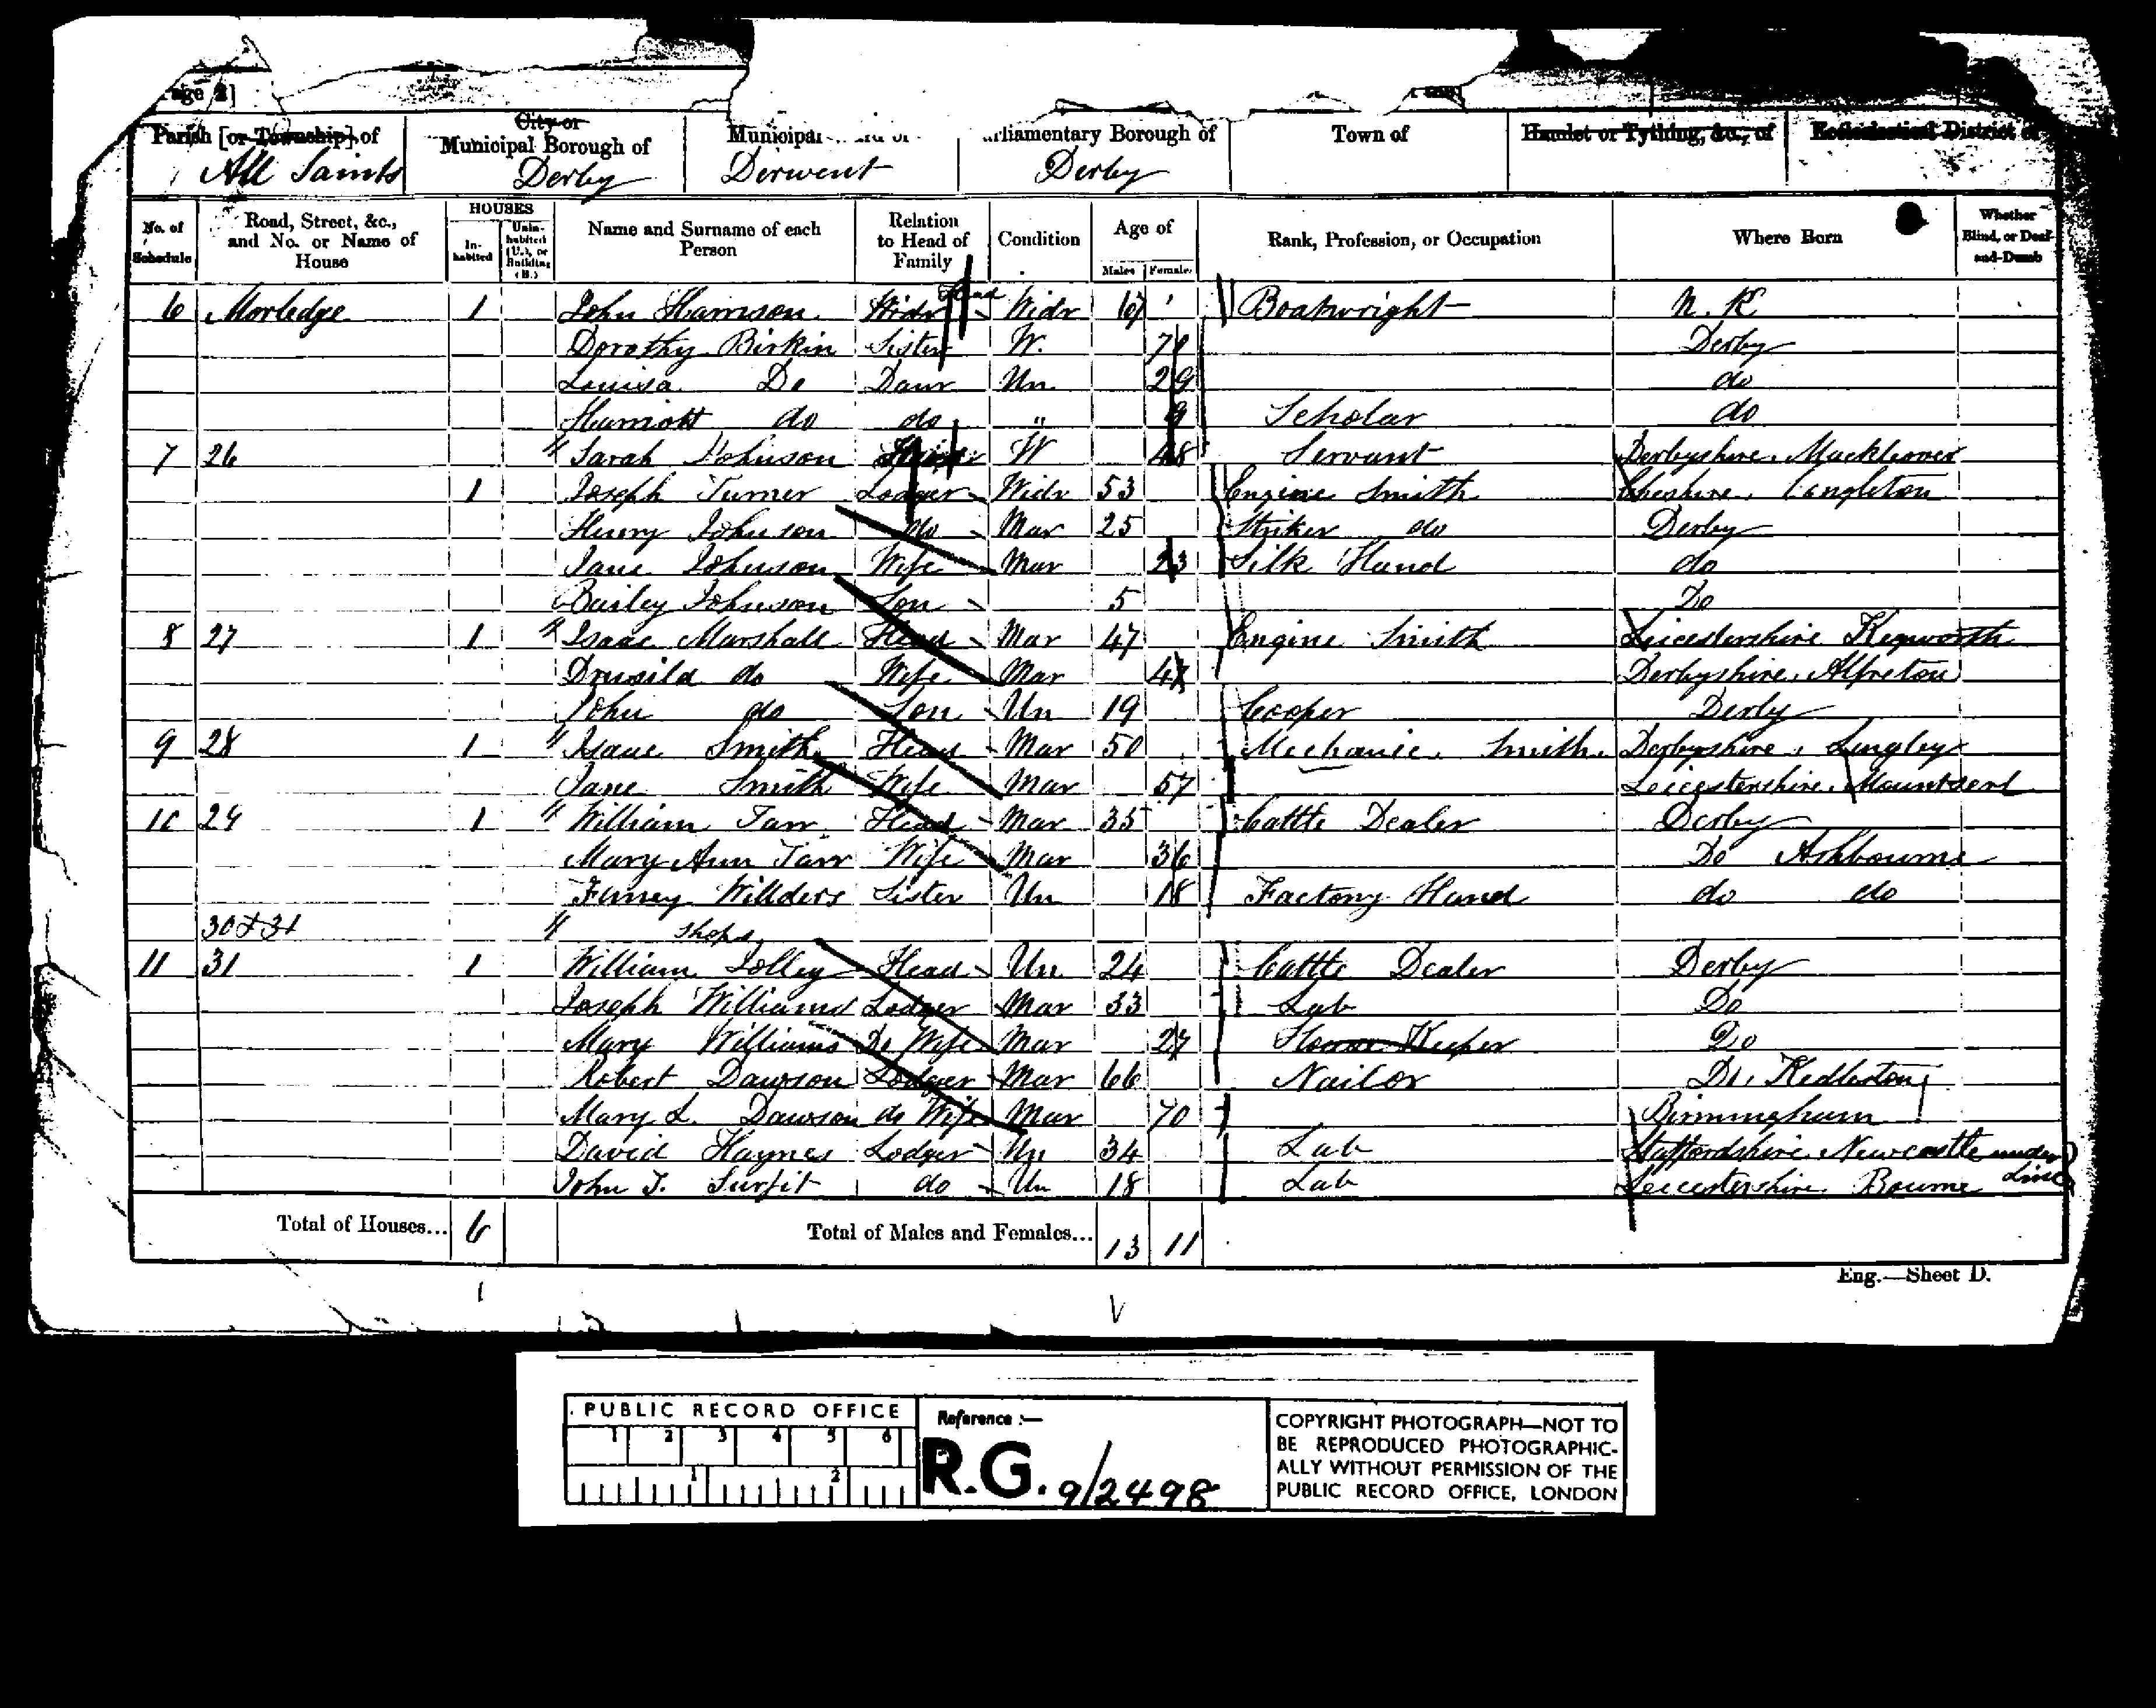 Page 2]
Parish [or Township] of
All Saints
City or
Municipal Borough of
Derby
Municipal Ward of
Derwent
Parliamentary Borough of
Derby
Town of
Hamlet or Tything, &c., of
Ecclesiastical District of
No. of Schedule
Road, Street, &c., and No. or Name of House
HOUSES
Inhabited
Uninhabited (U.), or Building (B.)
Name and Surname of each Person
Relation to Head of Family
Condition
Age of
Males Females
Rank, Profession, or Occupation
Where Born
Whether Blind, or Deaf-and-Dumb
6 Morledge 1 John Harrison Widr Head Widr 67 Boatwright N. K
Dorothy Birkin Sister W. Derby
Louisa Do Daur Un 29 do
Harriott do do " 9 Scholar do
7 26 Sarah Johnson W 48 Servant Derbyshire, Mackleover
1 Joseph Turner Lodger Widr 53 Engine Smith Cheshire, Congleton
Henry Johnson do Mar 25 Striker do Derby
Jane Johnson Wife Mar 23 Silk Hand do
Bailey Johnson Son 5 Do
8 27 1 Isaac Marshall Head Mar 47 Engine Smith Leicestershire Kegworth
Drusild do Wife Mar Derbyshire, Alfreton
John do Son Un 19 Cooper Derby
9 28 1 Isaac Smith Head Mar 50 Mechanic Smith Derbyshire, Langley
Jane Smith Wife Mar 57 Leicestershire, Mountserl
10 29 1 William Tarr Head Mar 35 Cattle Dealer Derby
Mary Ann Tarr Wife Mar 36 Do Ashbourne
Finney Willders Sister Un 18 Factory Hand do do
30 & 31 Shops
11 31 1 William Jolley Head Un 24 Cattle Dealer Derby
Joseph Williams Lodger Mar 33 Lab Do
Mary Williams Do Wife Mar 27 Keeper Do
Robert Dawson Lodger Mar 66 Nailor Do, Kedleston
Mary L. Dawson do Wife Mar 70 Birmingham
David Haynes Lodger Un 34 Lab Staffordshire, Newcastle under Line
John T. Surfit do Un 18 Lab Leicestershire Bourne
Total of Houses... 6
Total of Males and Females... 13 11
Eng.—Sheet D.
PUBLIC RECORD OFFICE
1 2 3 4 5 6
1 2
Reference:—
R.G. 9/2498
COPYRIGHT PHOTOGRAPH—NOT TO
BE REPRODUCED PHOTOGRAPHIC-
ALLY WITHOUT PERMISSION OF THE
PUBLIC RECORD OFFICE, LONDON